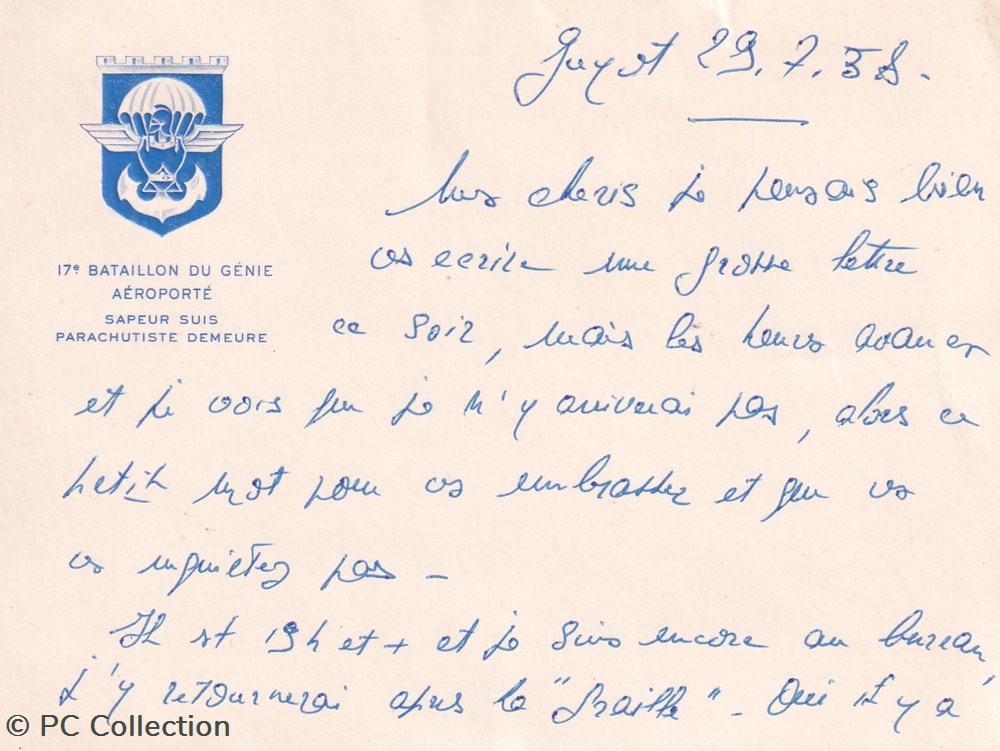 Guyot 29.7.58.
17e BATAILLON DU GÉNIE
AÉROPORTÉ
SAPEUR SUIS
PARACHUTISTE DEMEURE
Mes cheris je pensais bien
vs ecrire une grosse lettre
ce soir, mais les heures avances
et je vois que je n'y arriverai pas, alors ce
petit mot pour vs embrasser et que vs
vs inquietez pas -
Il est 19h et + et je suis encore au bureau,
j'y retournerai apres la "graille" - Oui il y a
© PC Collection